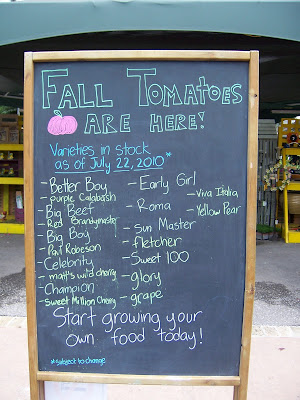 Fall Tomatoes
are here!
Varieties in stock
as of July 22, 2010*
- Better Boy
- purple Calabash
- Big Beef
- Red Brandymaster
- Big Boy
- Paul Robeson
- Celebrity
- matt's wild cherry
- Champion
- Sweet Million Cherry
- Early Girl
- Roma
- Sun Master
- fletcher
- Sweet 100
- glory
- grape
- Viva Italia
- Yellow Pear
Start growing your
own food today!
*subject to change